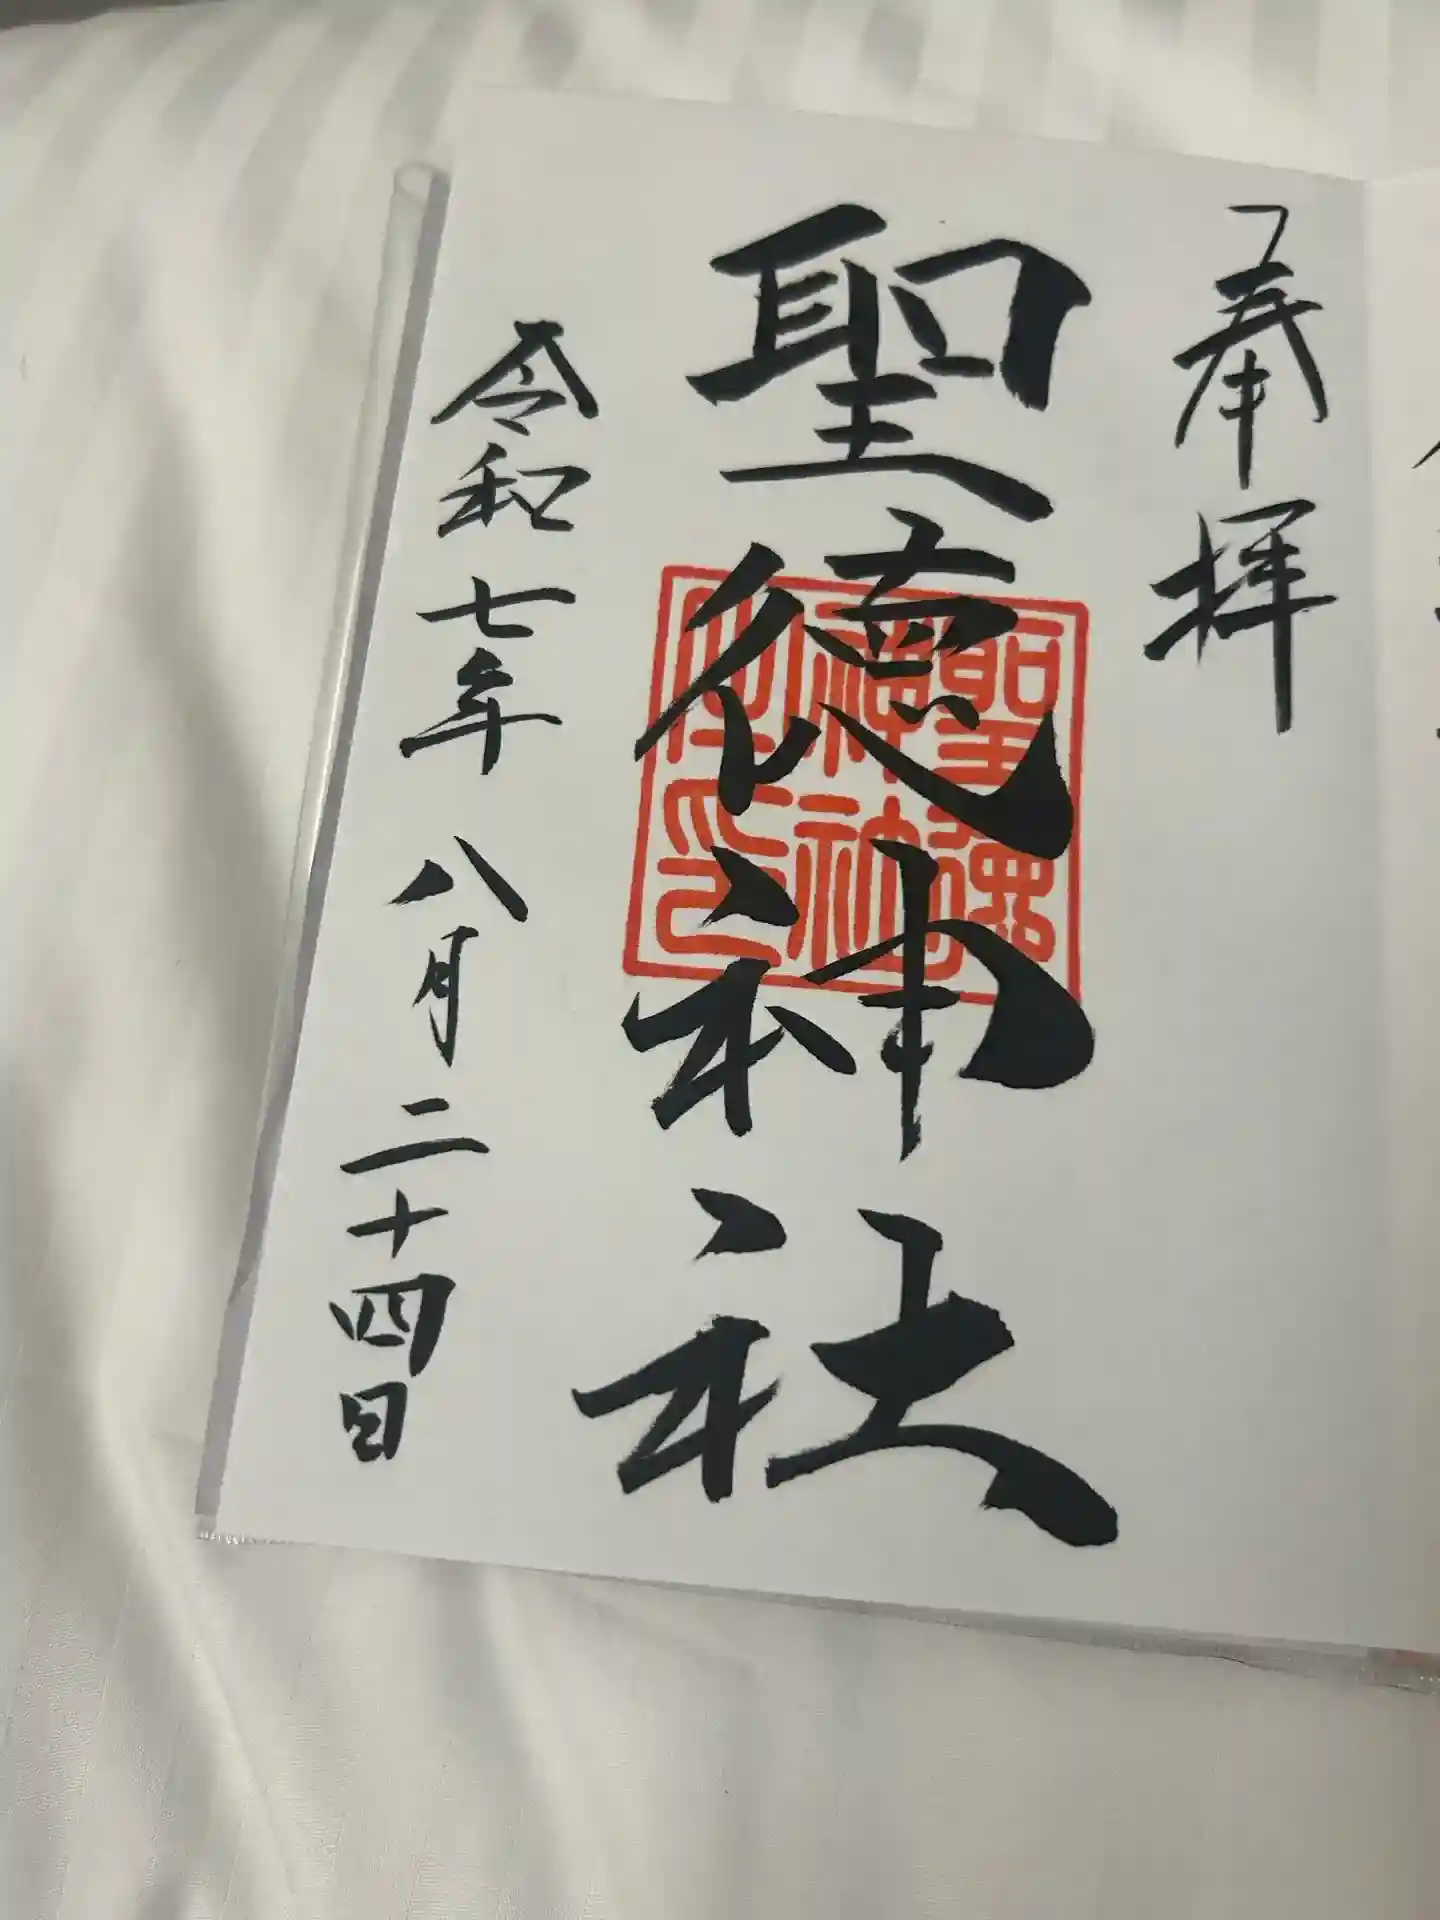 奉拝
聖徳神社
聖徳
神社
之印
令和七年八月二十四日